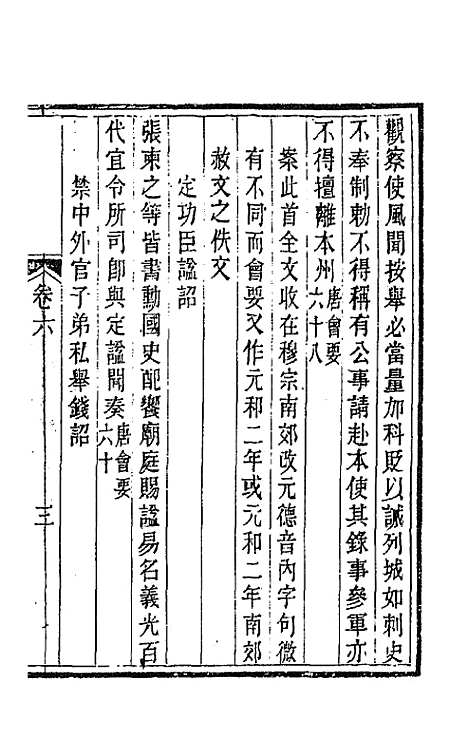 觀察使風聞按舉必當量加科貶以誡列城如刺史
不奉制勅不得稱有公事請赴本使其錄事參軍亦
不得擅離本州唐會要六十八
案此首全文收在穆宗南郊改元德音內字句微
有不同而會要又作元和二年或元和二年南郊
赦文之佚文
定功臣諡詔
張柬之等皆書勳國史配饗廟庭賜諡易名義光百
代宜令所司卽與定諡聞奏唐會要六十
禁中外官子弟私舉錢詔
卷六
三